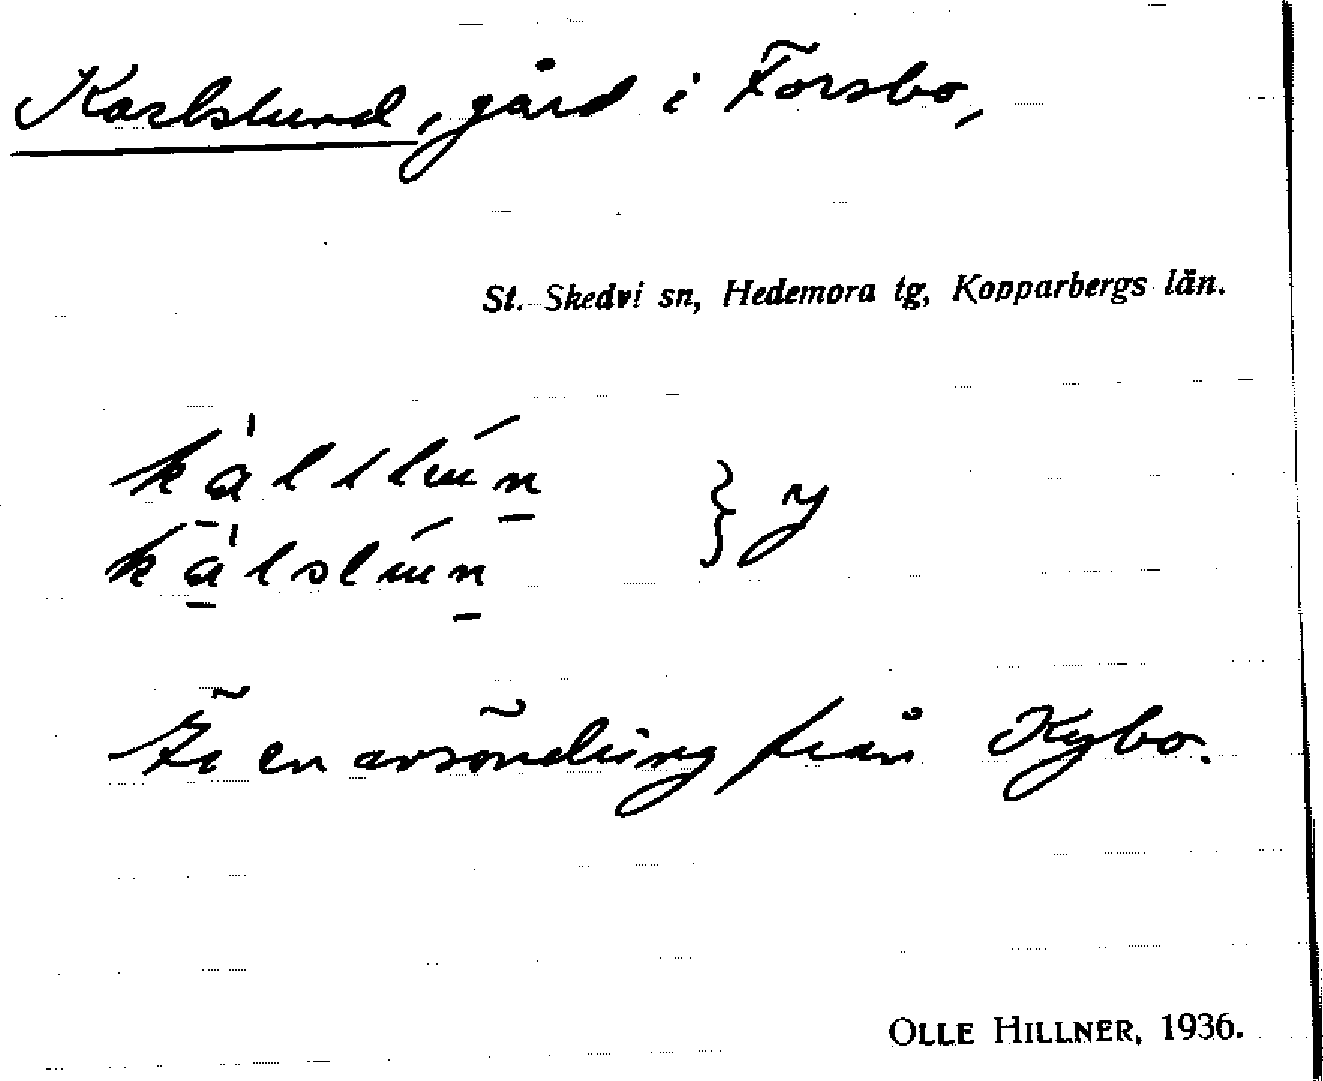 Karlslund, gård i Forsbo,
St. Skedvi sn, Hedemora tg, Kopparbergs län.
} y
Är en avsöndring från Kybo.
OLLE HILLNER, 1936.